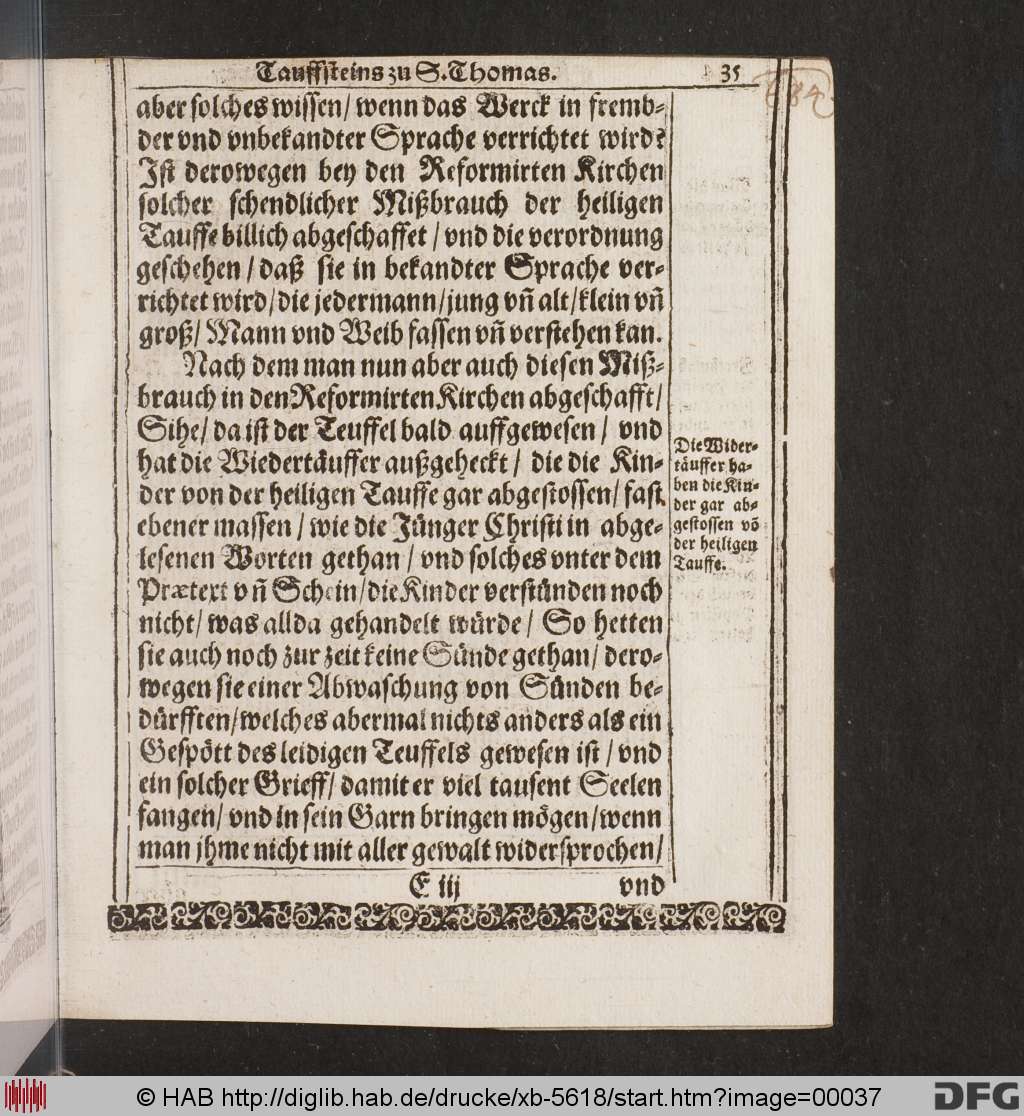 Tauffsteins zu S. Thomas. 35
aber solches wissen/ wenn das Werck in fremb-
der vnd vnbekandter Sprache verrichtet wird?
Ist derowegen bey den Reformirten Kirchen
solcher schendlicher Mißbrauch der heiligen
Tauffe billich abgeschaffet / vnd die verordnung
geschehen / daß sie in bekandter Sprache ver-
richtet wird/ die jedermann/ jung vñ alt/ klein vñ
groß/ Mann vnd Weib fassen vñ verstehen kan.
Nach dem man nun aber auch diesen Miß-
brauch in den Reformirten Kirchen abgeschafft/
Sihe/ da ist der Teuffel bald auffgewesen / vnd
hat die Wiedertäuffer außgeheckt / die die Kin-
der von der heiligen Tauffe gar abgestossen/ fast
ebener massen / wie die Jünger Christi in abge-
lesenen Worten gethan / vnd solches vnter dem
Prætext vñ Schein/ die Kinder verstünden noch
nicht/ was allda gehandelt würde/ So hetten
sie auch noch zur zeit keine Sünde gethan/ dero-
wegen sie einer Abwaschung von Sünden be-
dürfften/ welches abermal nichts anders als ein
Gespött des leidigen Teuffels gewesen ist / vnd
ein solcher Grieff/ damit er viel tausent Seelen
fangen/ vnd in sein Garn bringen mögen/ wenn
man jhme nicht mit aller gewalt widersprochen/
E iij vnd
Die Wider-
täuffer ha-
ben die Kin-
der gar ab-
gestossen võ
der heiligen
Tauffe.
© HAB http://diglib.hab.de/drucke/xb-5618/start.htm?image=00037
DFG